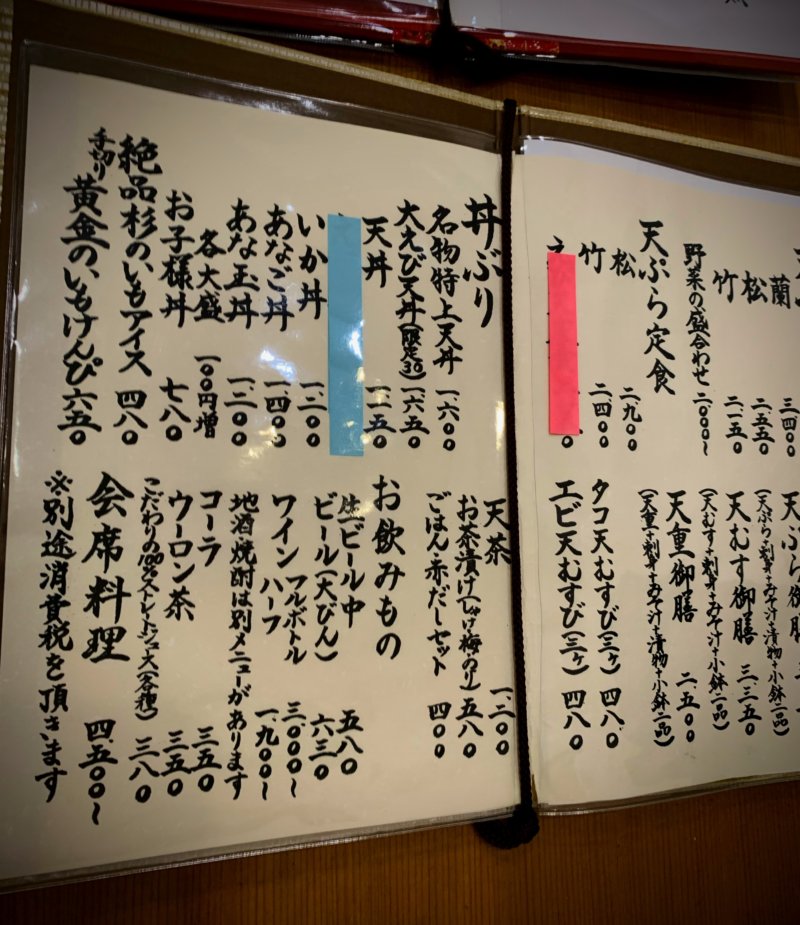 蘭 三、四〇〇
松 二、五五〇
竹 二、一五〇
野菜の盛合わせ 二、〇〇〇〜
天ぷら定食
松 二、九〇〇
竹 二、四〇〇
(天ぷら+刺身+みそ汁+漬物+小鉢二品)
天むす御膳 三、三五〇
(天むす+刺身+みそ汁+小鉢二品)
天重御膳 二、五〇〇
(天重+刺身+みそ汁+漬物+小鉢二品)
タコ天むすび(三ヶ) 四八〇
エビ天むすび(三ヶ) 四八〇
丼ぶり
名物特上天丼 一、六〇〇
大えび天丼(限定30) 一、六五〇
天丼 一、一五〇
いか丼 一、二〇〇
あなご丼 一、四〇〇
あな玉丼 一、三〇〇
各大盛 一〇〇円増
お子様丼 七八〇
絶品杉のいもアイス 四八〇
手切り 黄金のいもけんぴ 六五〇
天茶 一、二〇〇
お茶漬け(しゃけ・梅・のり) 五八〇
ごはん・赤だしセット 四〇〇
お飲みもの
生ビール中 五八〇
ビール(大びん) 六三〇
ワイン フルボトル 三、〇〇〇〜
ハーフ 一、九〇〇〜
地酒・焼酎は別メニューがあります
コーラ 三五〇
ウーロン茶 三五〇
こだわりの100%ストレートジュース(各種) 三八〇
会席料理 四、五〇〇〜
※別途消費税を頂きます